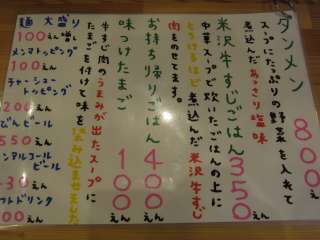 タンメン 800えん
スープにたっぷりの野菜を入れて
煮込んだあっさり塩味
米沢牛すじごはん 350えん
中華スープで炊いたごはんの上に
とろけるほど煮込んだ米沢牛すじ
肉をのせてます。
お持ち帰りごはん 400えん
味つけたまご 100えん
牛すじ肉のうまみが出たスープに
たまごを付けて味を染み込ませました
麺 大盛り
100えん増し
メンマトッピング
100えん
チャーシュートッピング
200えん
びんビール
550えん
ンアルコールビール
430えん
フトドリンク